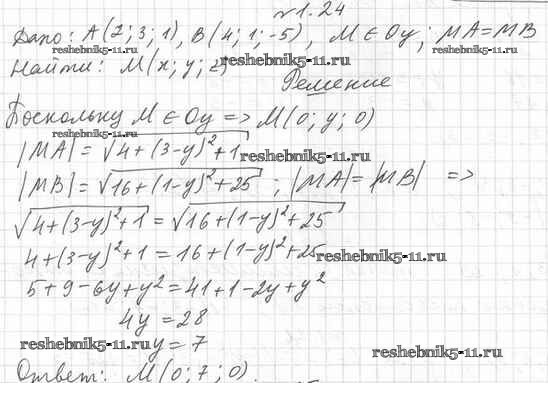 №1.24
Дано: A(2; 3; 1), B(4; 1; -5), M ∈ Oy; MA = MB
reshebnik5-11.ru
Найти: M(x; y; z) reshebnik5-11.ru
Решение
Поскольку M ∈ Oy => M(0; y; 0)
reshebnik5-11.ru
|MA| = √4+(3-y)²+1 reshebnik5-11.ru
|MB| = √16+(1-y)²+25 ; |MA| = |MB| =>
√4+(3-y)²+1 = √16+(1-y)²+25
4+(3-y)²+1 = 16+(1-y)²+25 reshebnik5-11.ru
5+9-6y+y² = 41+1-2y+y²
4y = 28
reshebnik5-11.ru y = 7 reshebnik5-11.ru
Ответ: M(0; 7; 0).